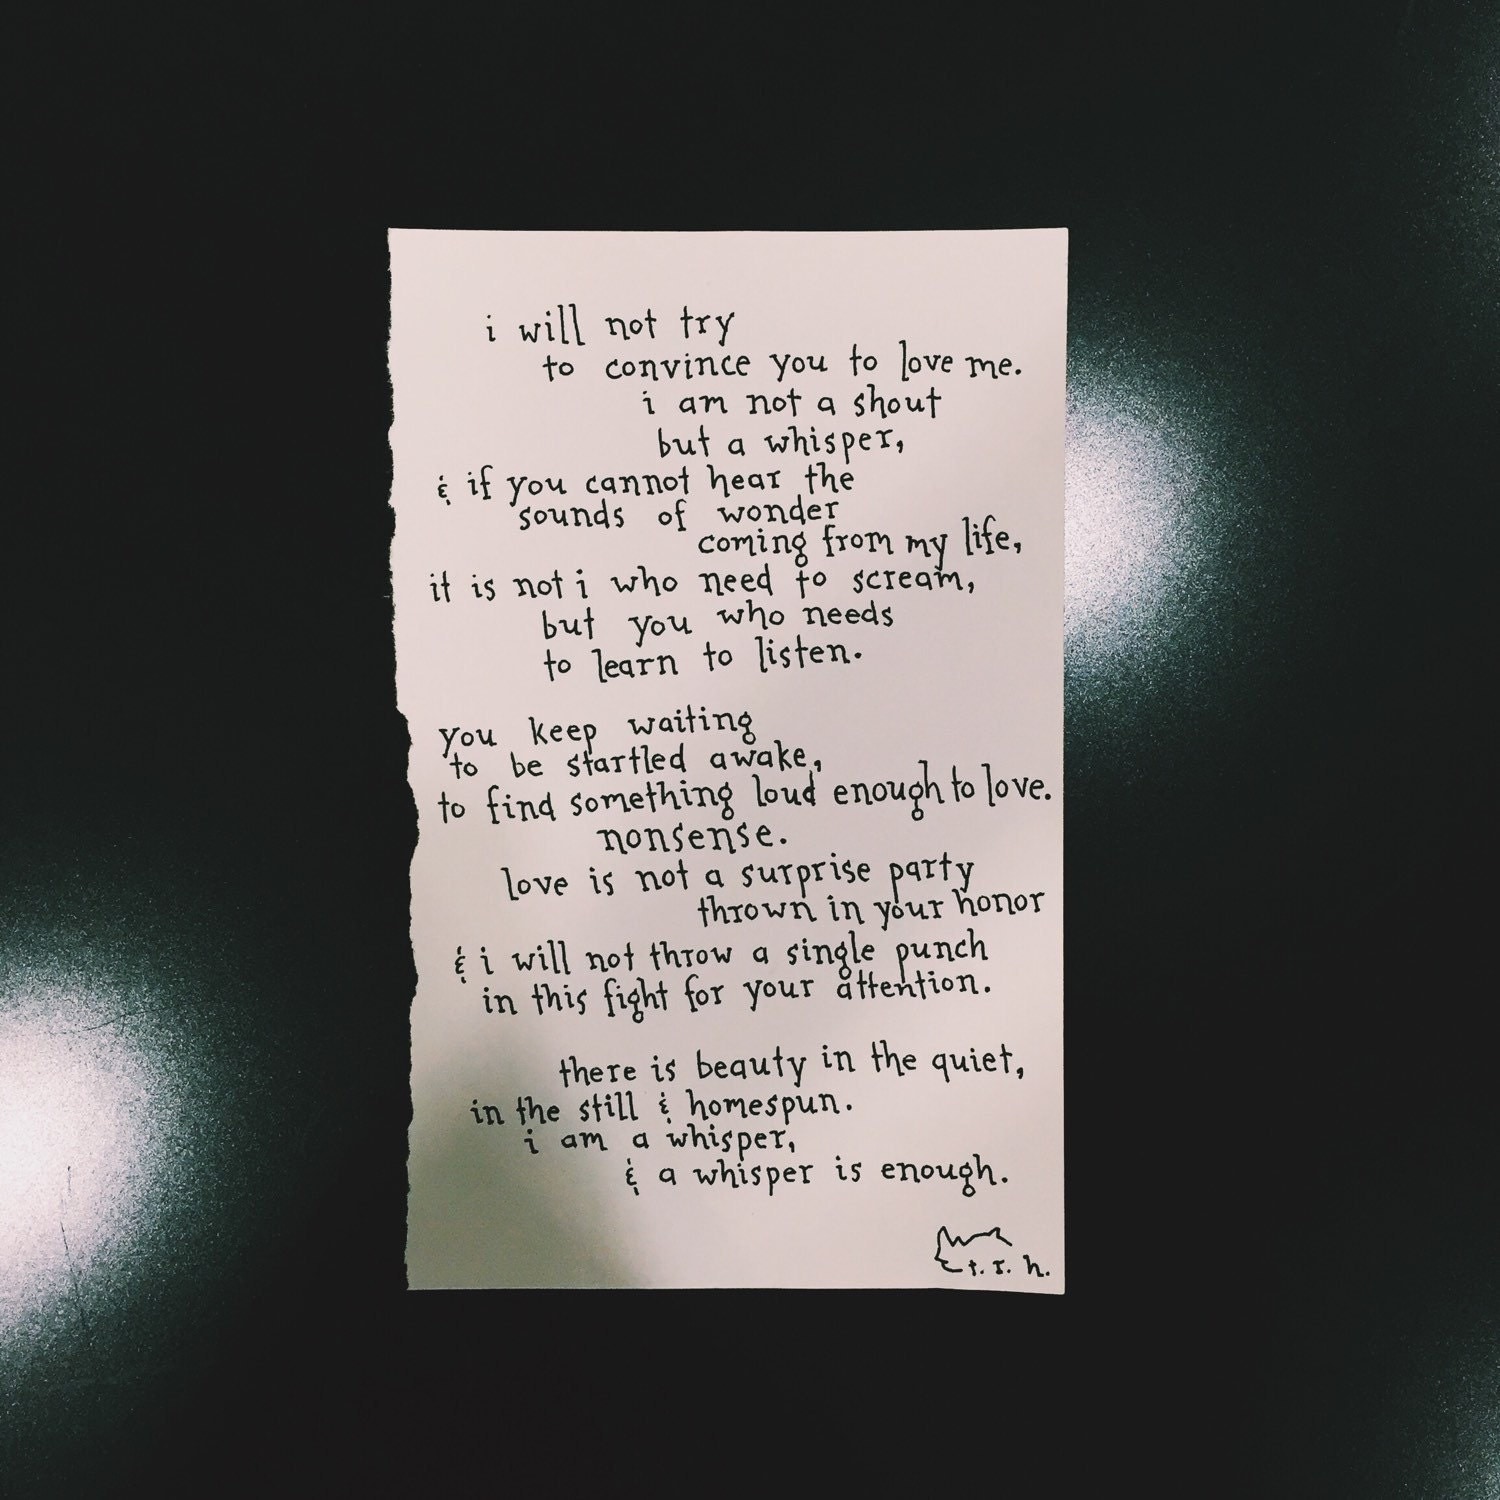 i will not try
to convince you to love me.
i am not a shout
but a whisper,
& if you cannot hear the
sounds of wonder
coming from my life,
it is not i who need to scream,
but you who needs
to learn to listen.
you keep waiting
to be startled awake,
to find something loud enough to love.
nonsense.
love is not a surprise party
thrown in your honor
& i will not throw a single punch
in this fight for your attention.
there is beauty in the quiet,
in the still & homespun.
i am a whisper,
& a whisper is enough.
t. r. h.